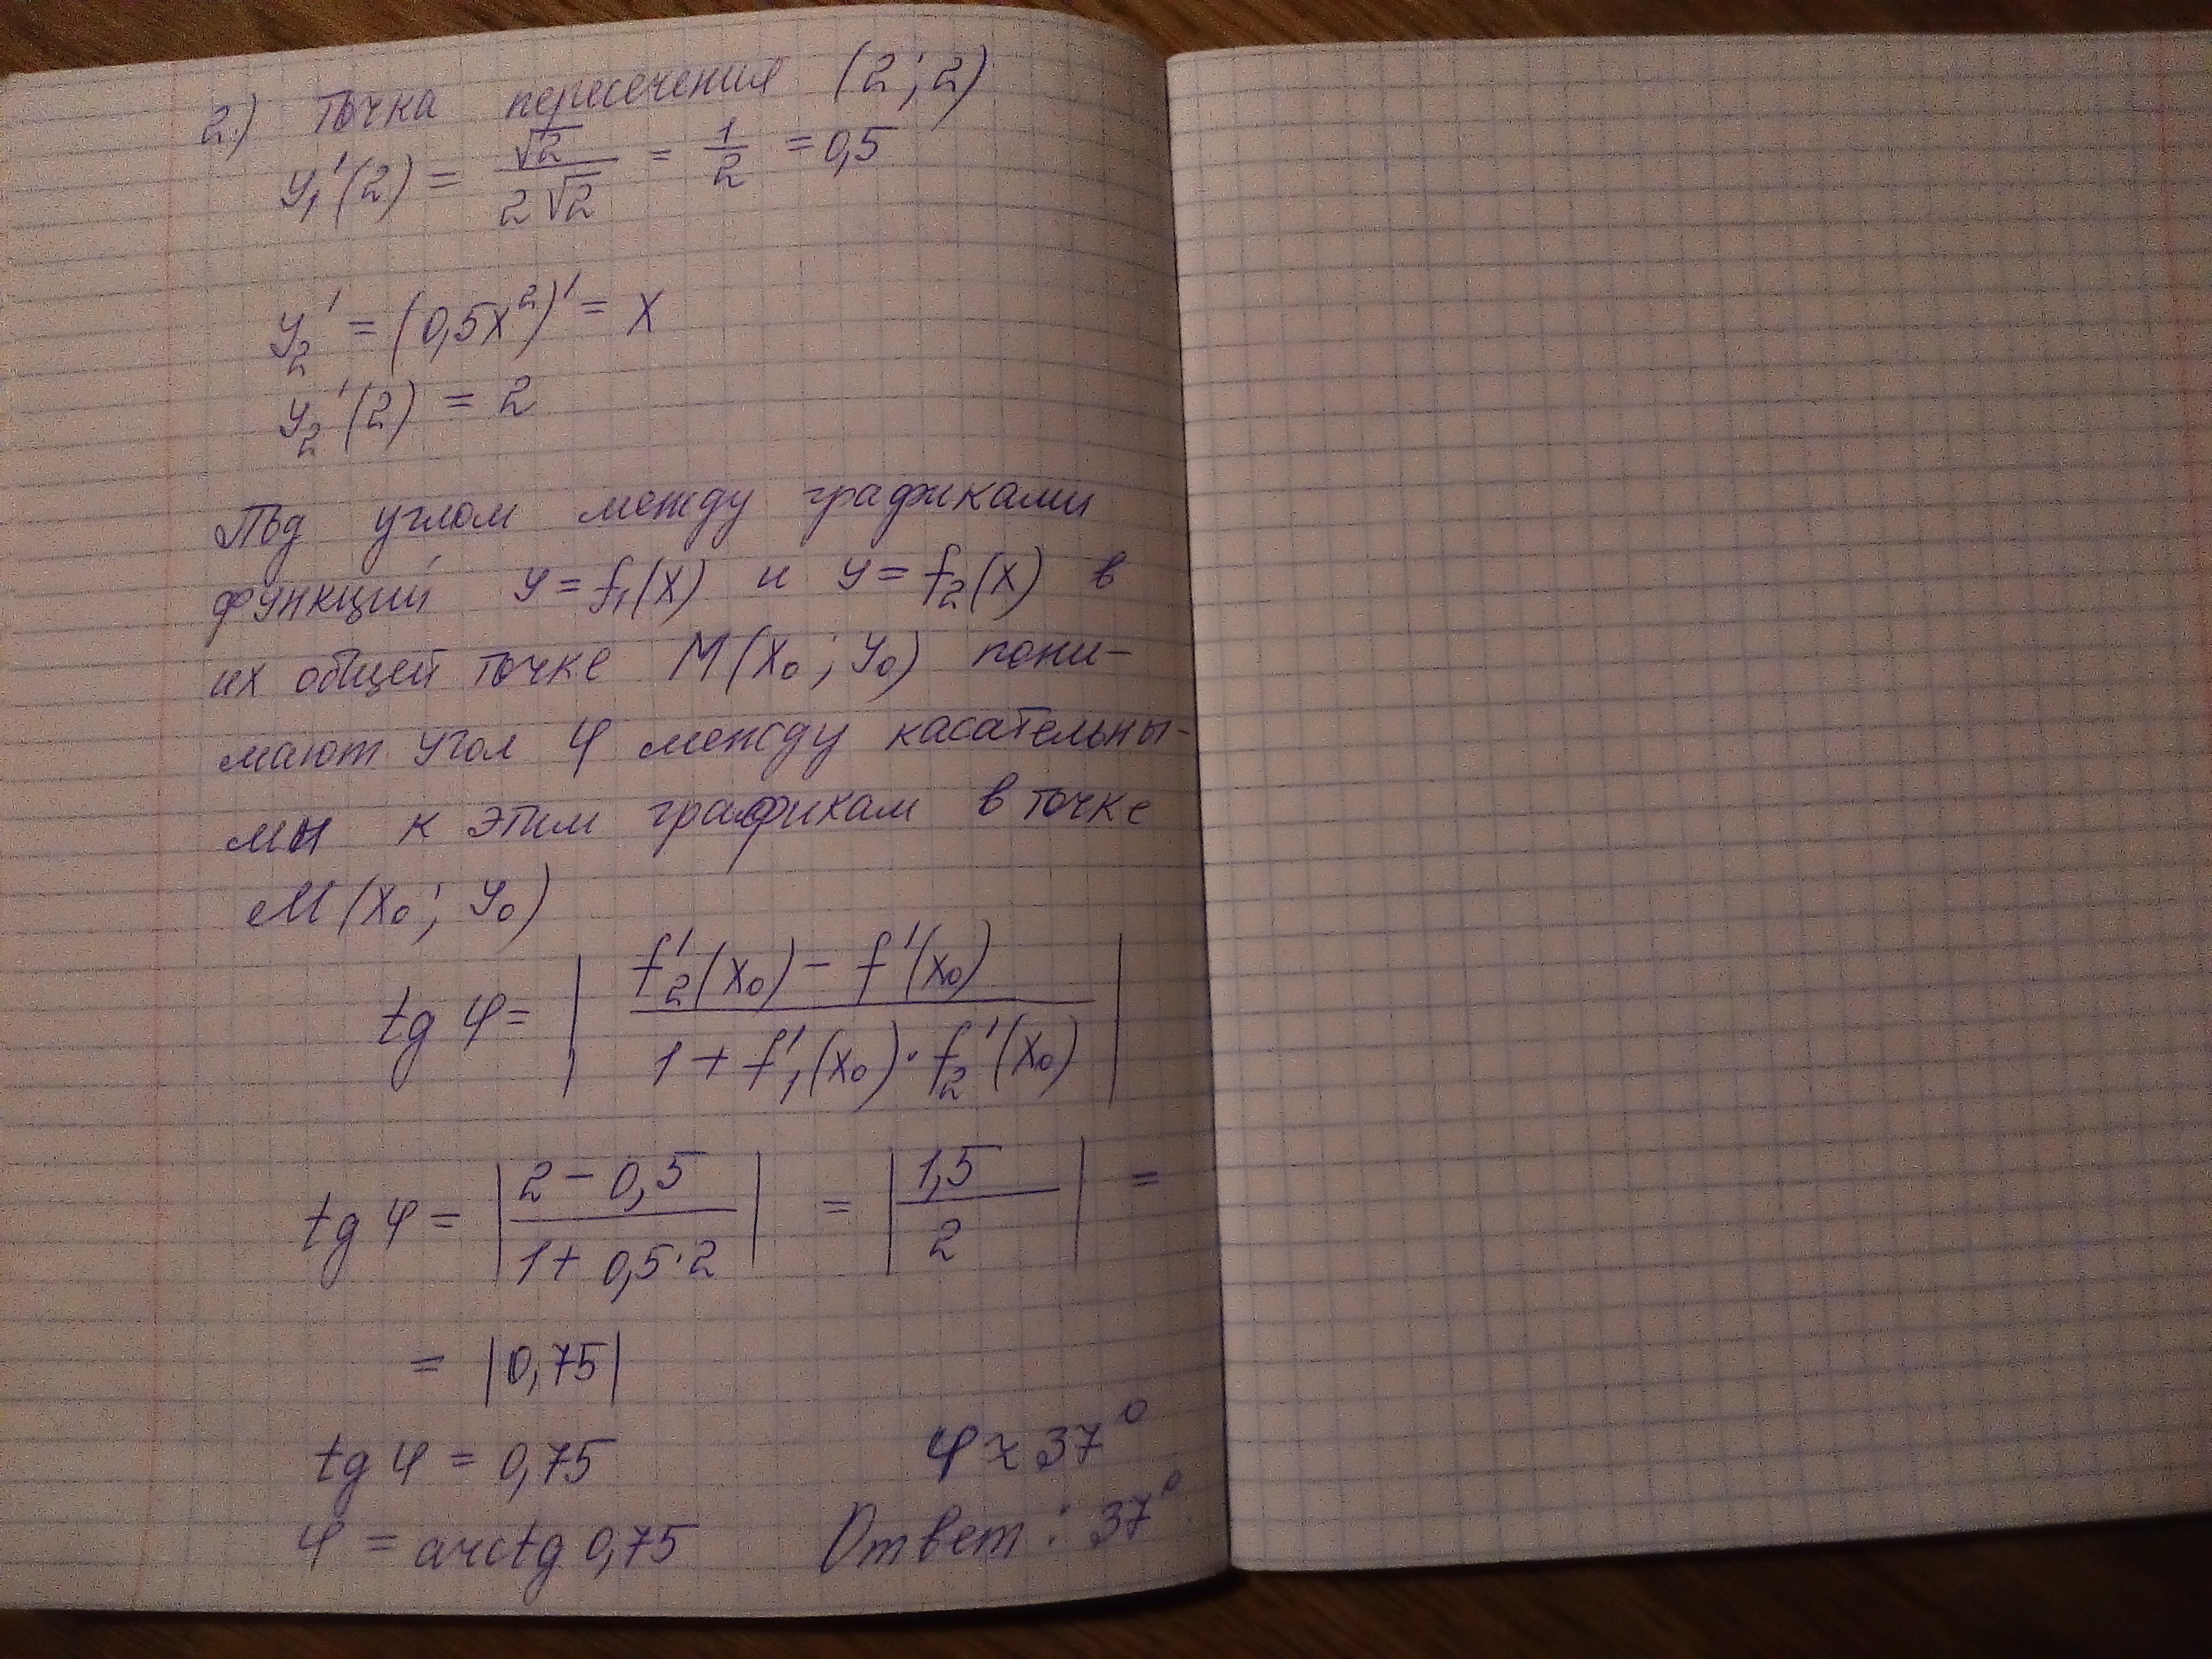 2.) Точка пересечения (2; 2)
y₁'(2) = √2 / 2√2 = 1/2 = 0,5
y₂' = (0,5x²)' = x
y₂'(2) = 2
Под углом между графиками
функций y = f₁(x) и y = f₂(x) в
их общей точке M(x₀; y₀) пони-
мают угол φ между касательны-
ми к этим графикам в точке
M(x₀; y₀)
tg φ = | f₂'(x₀) - f'(x₀) / 1 + f₁'(x₀) · f₂'(x₀) |
tg φ = | 2 - 0,5 / 1 + 0,5·2 | = | 1,5 / 2 | =
= |0,75|
tg φ = 0,75
φ ≈ 37°
φ = arctg 0,75
Ответ: 37°.